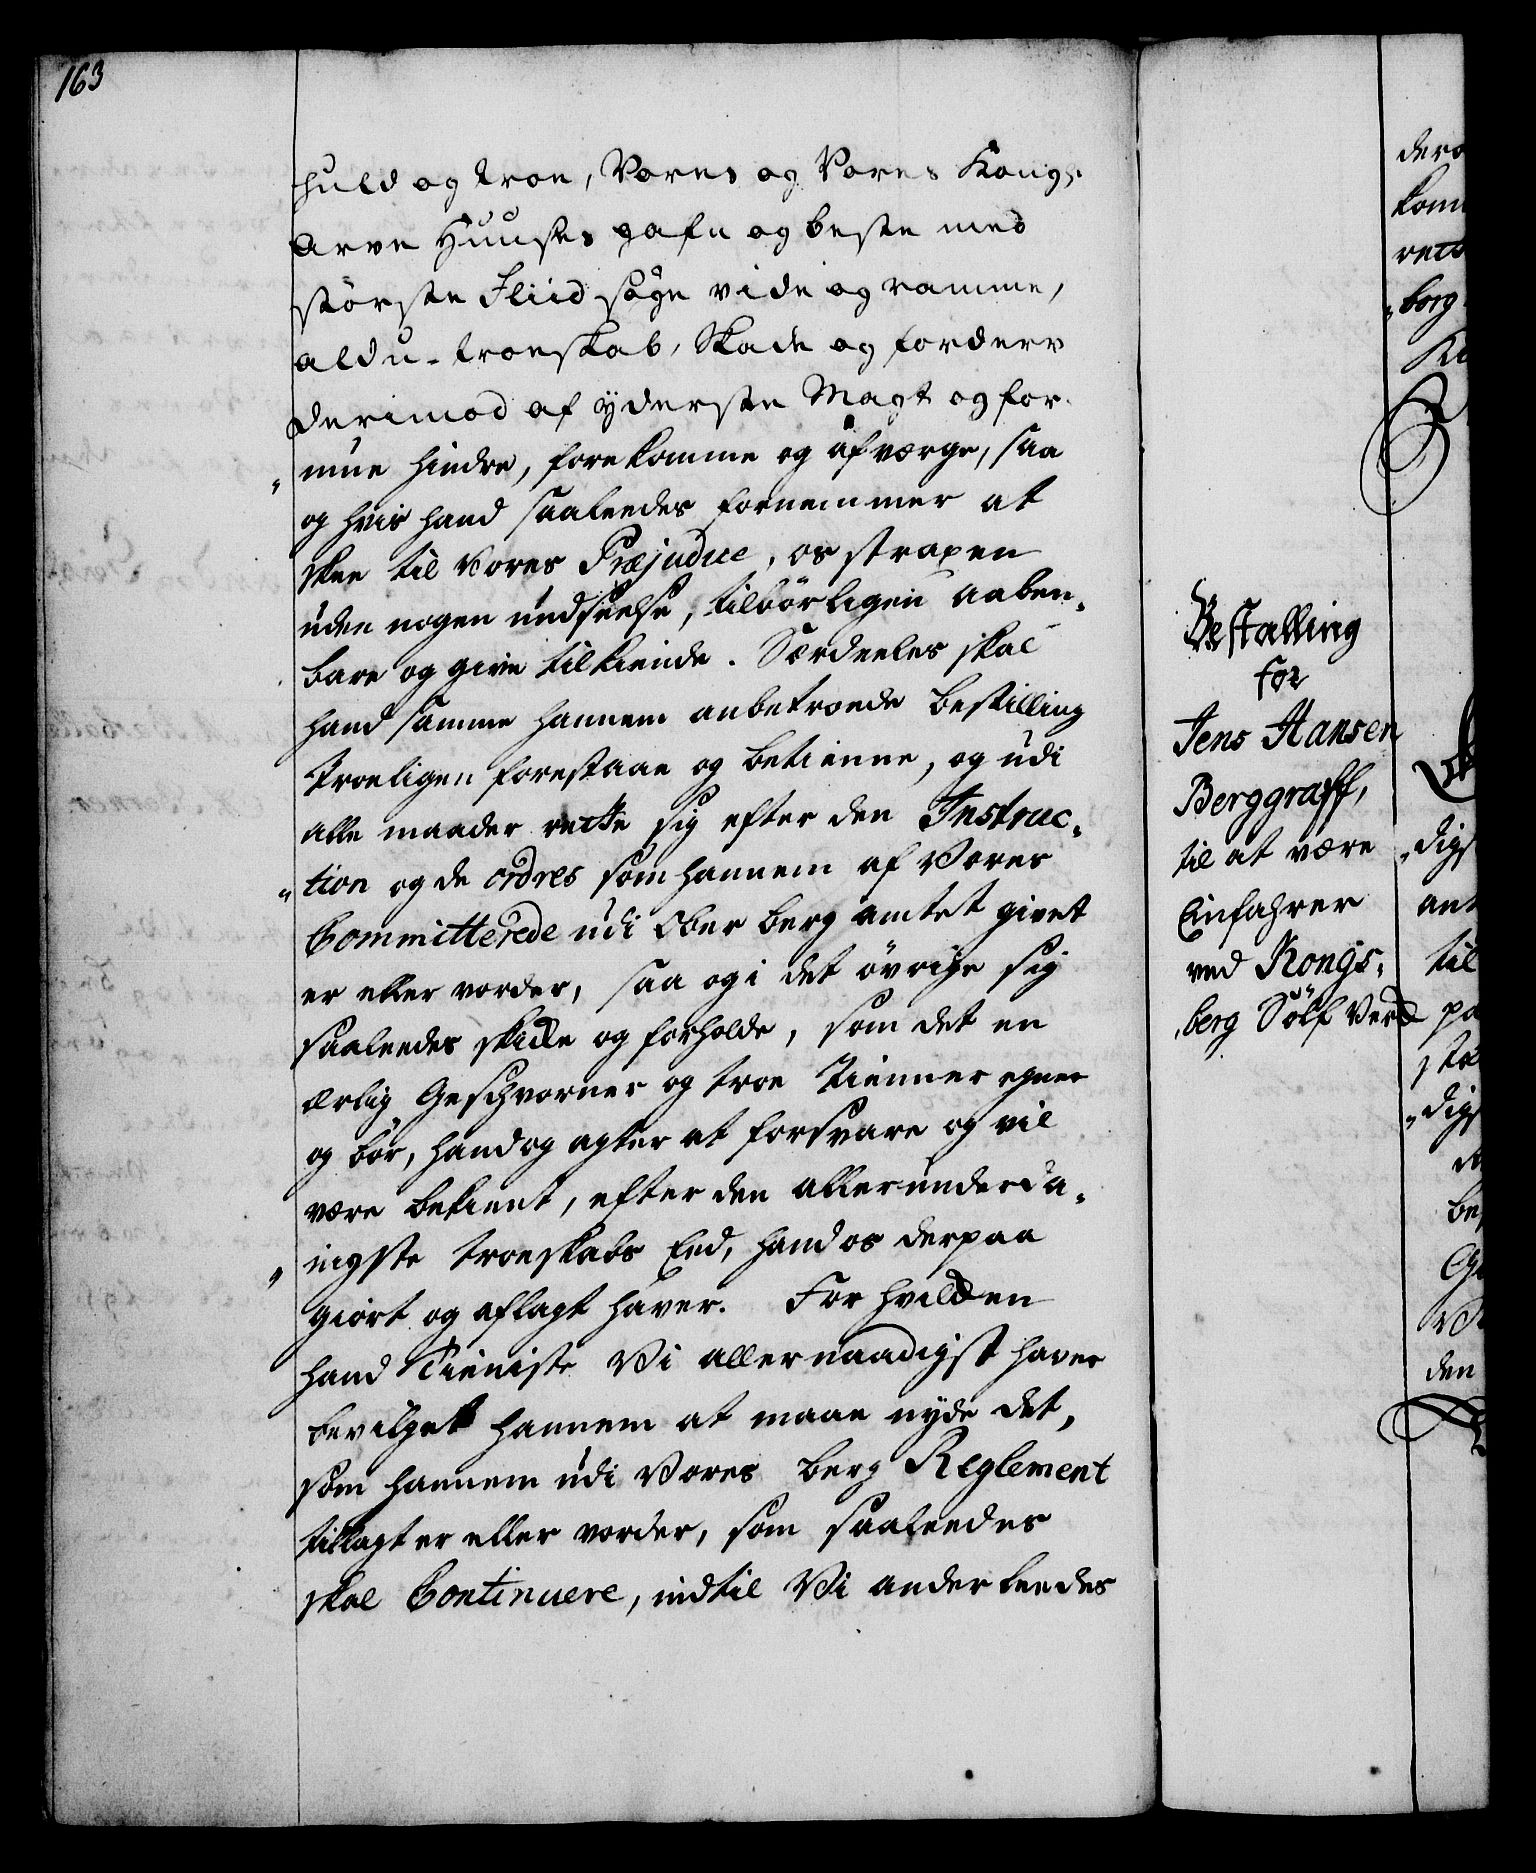 163
huld og troe, Vores og Vores Kongl.
Arve Huuses gafn og beste med
störste Fliid söge vide og ramme,
ald u-troeskab, Skade og forderv
derimod af yderste Magt og for-
„mue hindre, forekomme og afværge, saa
og hvis hand saaleedes fornemmer at
skee til Vores Præjudice, os straxen
uden nogen undseelse, tilbörligen aaben-
bare og give tilkiende. Særdeeles skal
hand samme hannem anbetroede bestilling
troeligen forestaae og betienne, og udi
alle maader rette sig efter den Instruc-
„tion og de ordres som hannem af Vores
Committerede udi Ober berg amtet givet
er eller vorder, saa og i det övrige sig
saaleedes skicke og forholde, som det en
ærlig Geschworner og troe Tienner egner
og bör, hand og agter at forsvare og vil
være bekient, efter den allerunderda-
„nigste troeskabs Eed, hand os derpaa
giort og aflagt haver. For hvilcken
hand Tieniste Vi allernaadigst haver
bevilget hannem at maae nyde det,
som hannem udi Vores berg Reglement
tillagt er eller vorder, som saaleedes
skal Continuere, indtil Vi anderleedes
Bestalling
for
Jens Hansen
Berggraff,
til at være
Einfahrer
ved Kongs-
„berg Sölf Verck